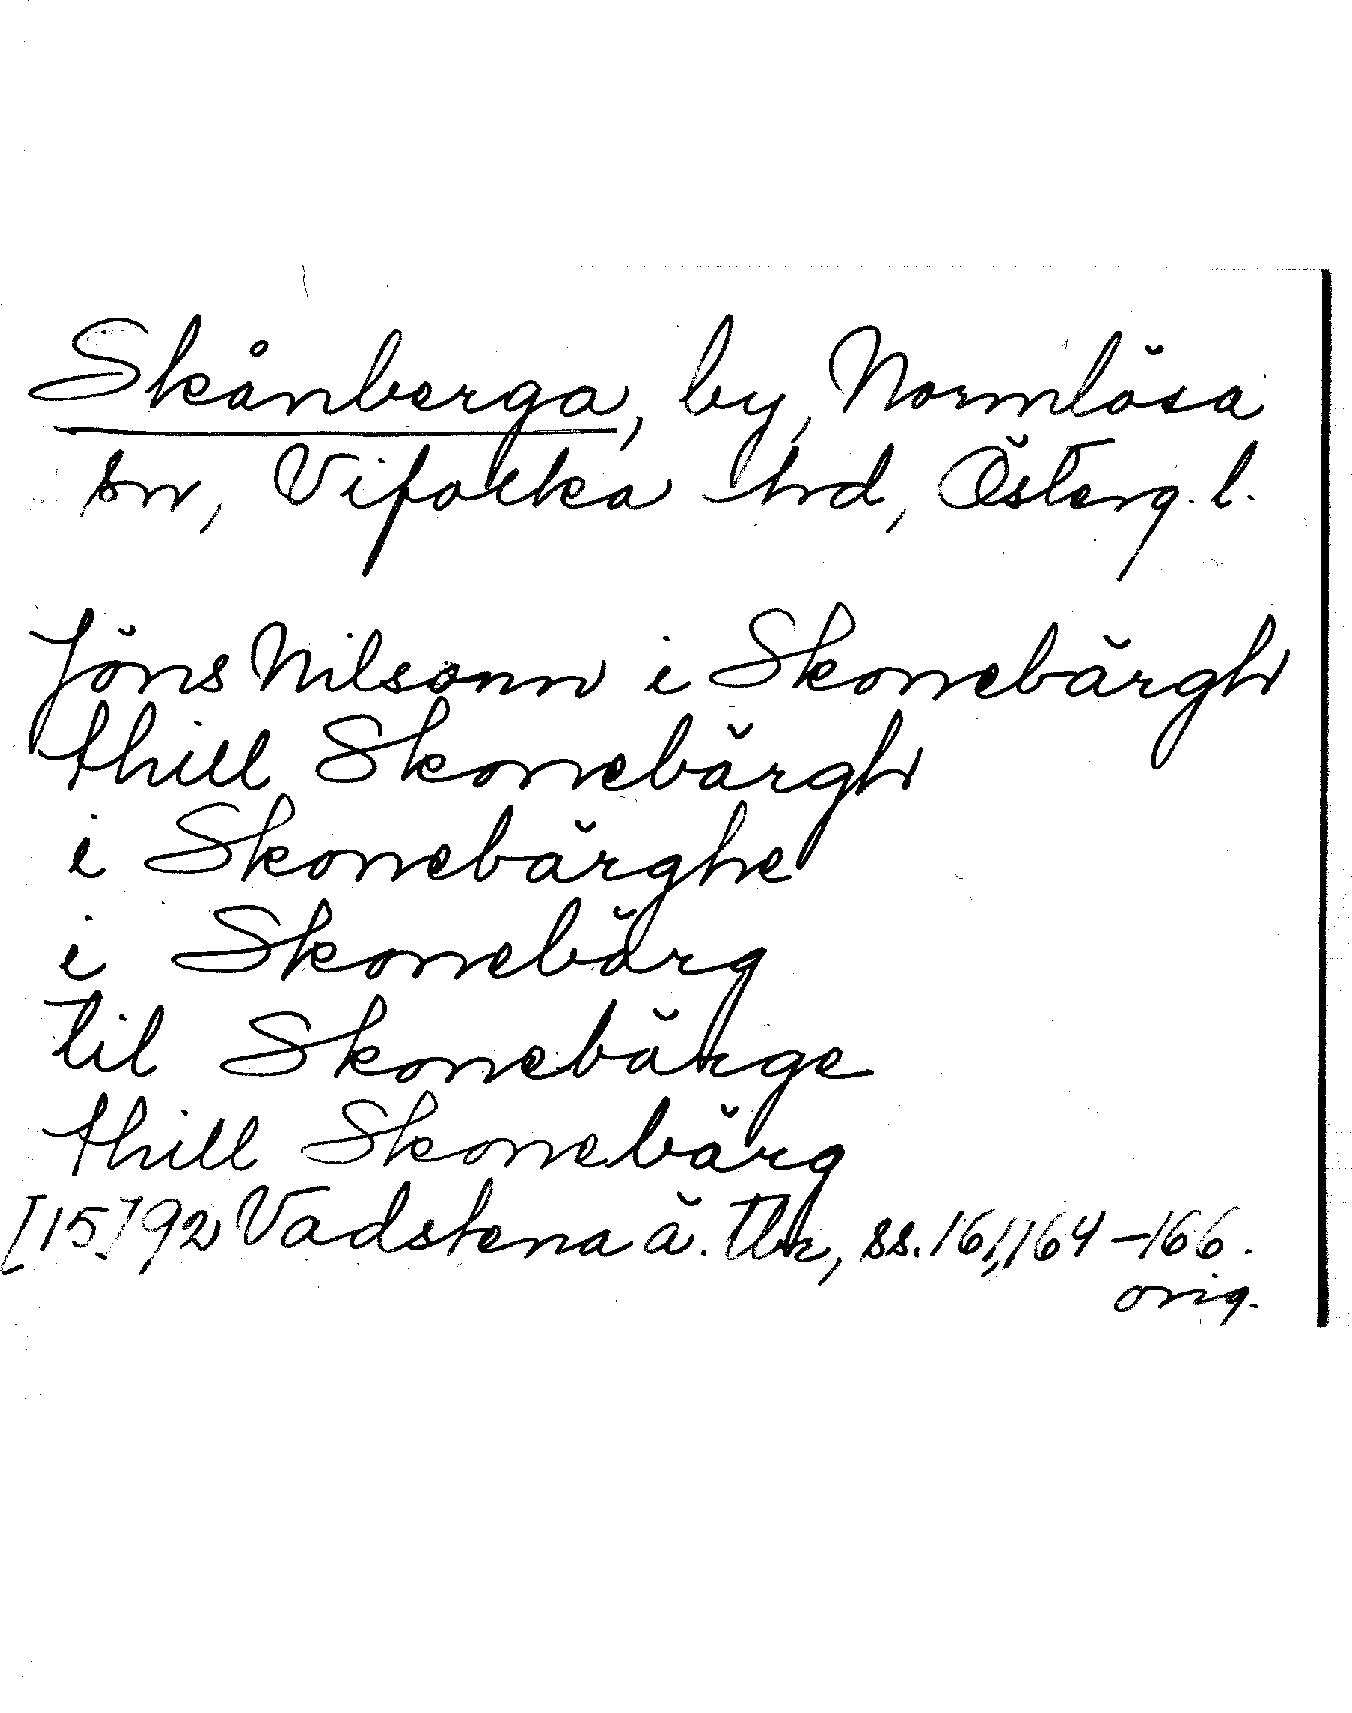 Skånberga, by, Normlösa
sn, Vifolka hrd, Österg. l.
Jöns Nilsonn i Skonebärgh
thill Skonebärgh
i Skonebärghe
i Skonebärg
til Skonebärge
thill Skonebärg
[15]92 Vadstena ä. Tbr, ss. 161, 164-166.
orig.